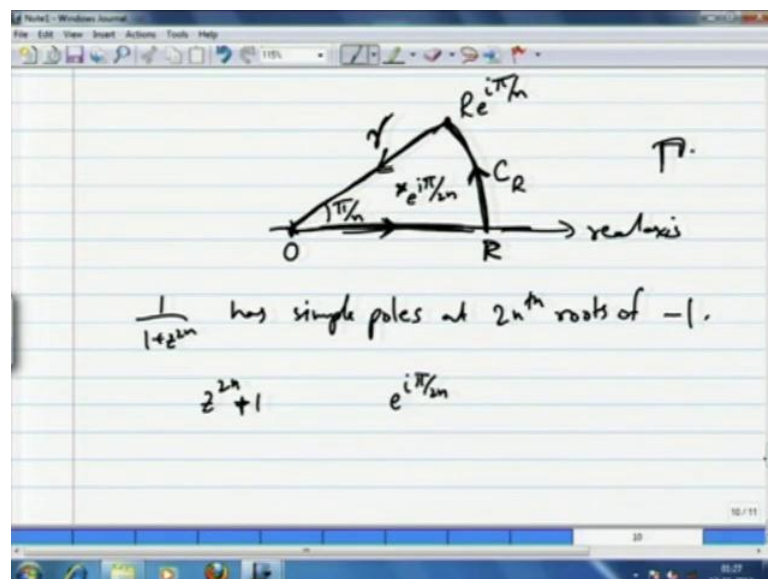 Note1 - Windows Journal
File Edit View Insert Actions Tools Help
115%
Re^{iπ/n}
γ
Γ.
C_R
*e^{iπ/2n}
π/n
O
R
real axis
1/(1+z^{2n}) has simple poles at 2n^{th} roots of -1.
z^{2n}+1 e^{iπ/2n}
10/11
10
01:27